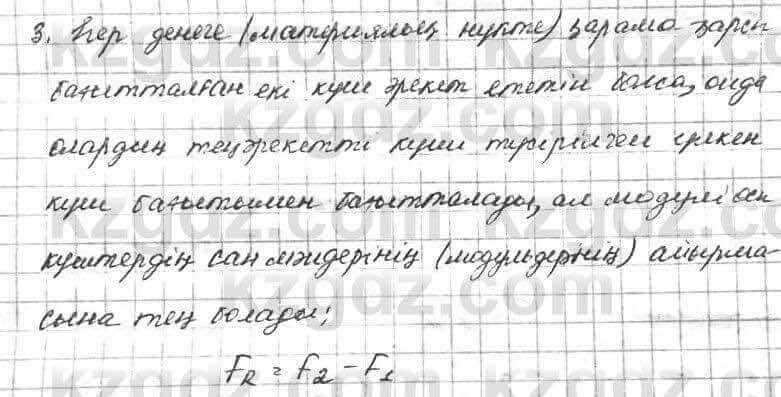 3. Егер денеге (материялық нүкте) қарама қарсы
бағытталған екі күш әрекет ететін болса, онда
олардың теңәрекетті күші түсірілген үлкен
күш бағытымен бағытталады, ал модулі осы
күштердің сан мәндерінің (модульдерінің) айырма-
сына тең болады;
FR = F2 - F1
kzgdz.com